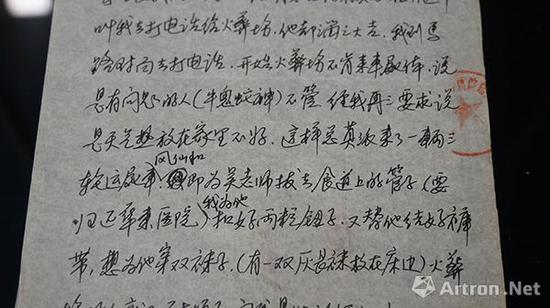 叫我去打电话给火葬场，他却溜之大吉，我到马
路对面去打电话，开始火葬场不肯来车取体，说
是有问题的人（牛鬼蛇神）不管，经我再三要求说
是天气热放在家里不好，这样总算派来了一辆三
轮运尸车，风仙和即为吴老师拔去食道上的管子（要
归还华东医院）我为他扣好两粒钮子，又替他结好裤
带，想为他穿双袜子，（有一双灰长袜放在床边）火葬
Artron.Net